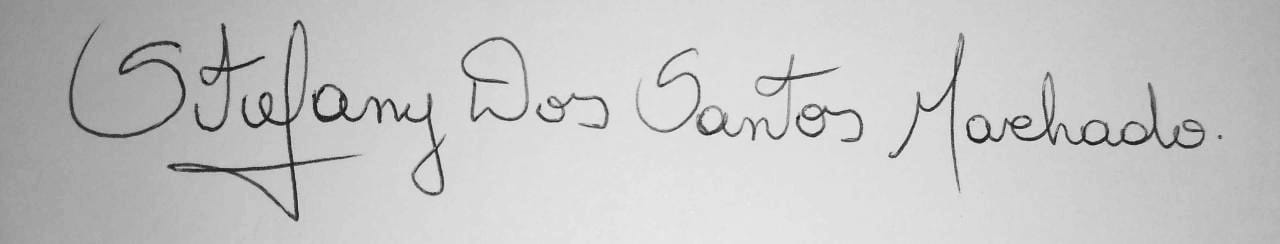 Stefany Dos Santos Machado.